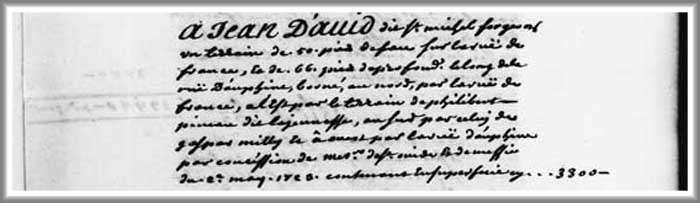 A Jean David dit St. michel forgeron
un terrain de 50. pied de face sur la rue de
france, & de 66. pied de profond. le long de la
rue Dauphine, borné, au nord, par la rue de
france, a l'Est par le terrain de philibert
dit lajeunesse, au sud par celuy de
gaspar milly et à ouest par la rue dauphine
par concéssion de mess.rs de St. & de
du 2e. may. contenant en superficie cy ... 3300 —